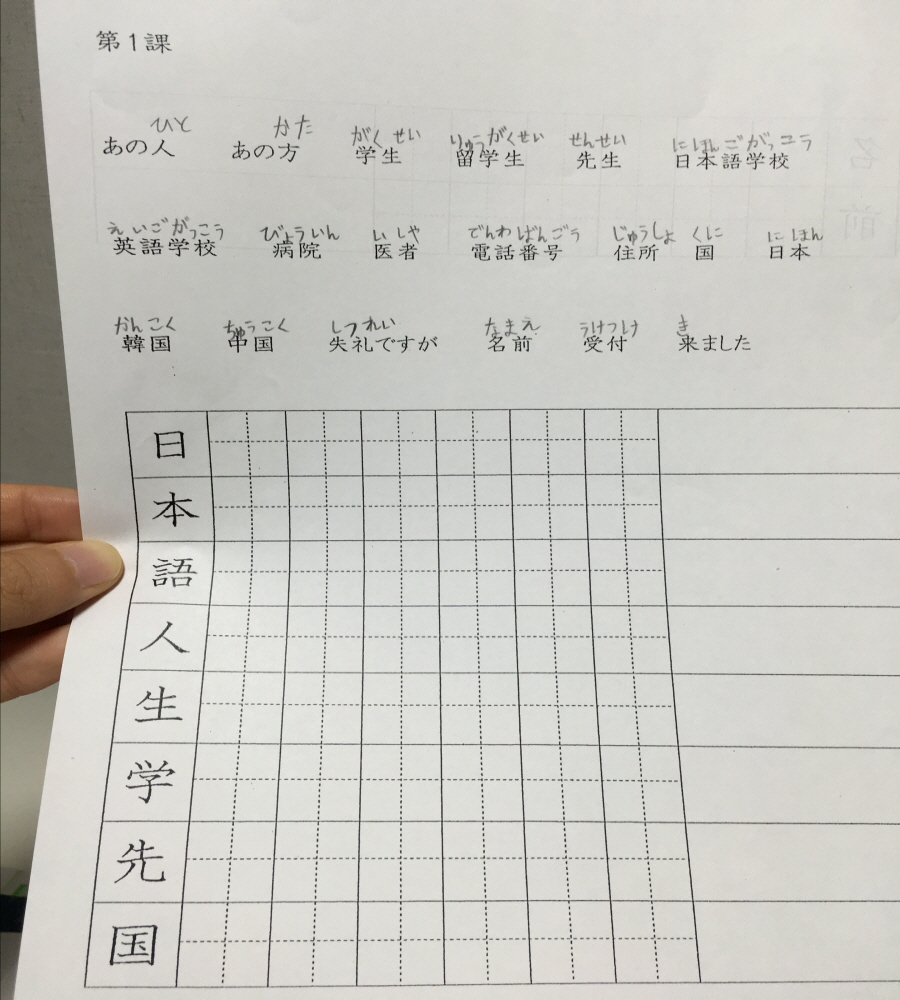 第1課
ひと かた がくせい りゅうがくせい せんせい にほんごがっコラ
あの人 あの方 学生 留学生 先生 日本語学校
えいごがっこう びょういん いしゃ でんわばんごう じゅうしょ くに にほん
英語学校 病院 医者 電話番号 住所 国 日本
かんこく ちゅうこく しつれい なまえ うけつけ き
韓国 中国 失礼ですが 名前 受付 来ました
日
本
語
人
生
学
先
国